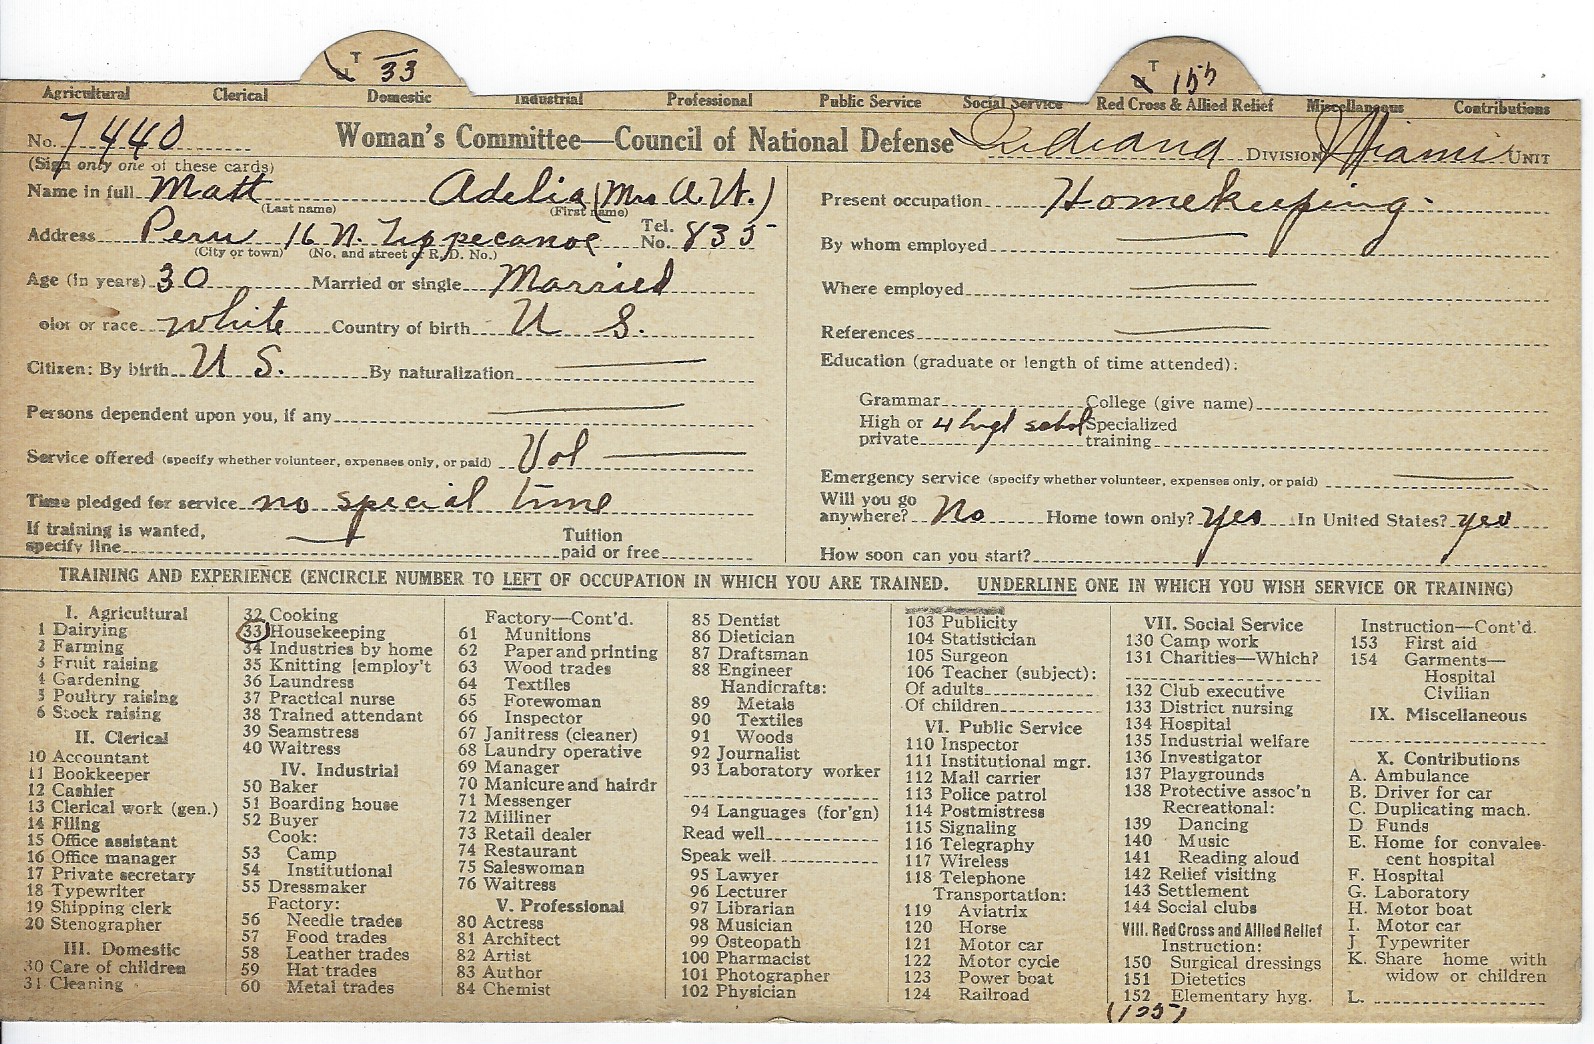 T 33
T 155
Agricultural Clerical Domestic Industrial Professional Public Service Social Service Red Cross & Allied Relief Miscellaneous Contributions
No. 7440 Woman's Committee—Council of National Defense Indiana DIVISION Miami UNIT
(Sign only one of these cards)
Name in full Matt Adelia (Mrs A. W.)
(Last name) (First name)
Address Peru 16 N. Tippecanoe Tel. No. 835
(City or town) (No. and street or R. D. No.)
Age (in years) 30 Married or single Married
olor or race white Country of birth U S.
Citizen: By birth U S. By naturalization
Persons dependent upon you, if any
Service offered (specify whether volunteer, expenses only, or paid) Vol
Time pledged for service no special time
If training is wanted, specify line Tuition paid or free
Present occupation Homekeeping.
By whom employed
Where employed
References
Education (graduate or length of time attended):
Grammar College (give name)
High or private 4 high school Specialized training
Emergency service (specify whether volunteer, expenses only, or paid)
Will you go anywhere? No Home town only? Yes In United States? yes
How soon can you start?
TRAINING AND EXPERIENCE (ENCIRCLE NUMBER TO LEFT OF OCCUPATION IN WHICH YOU ARE TRAINED. UNDERLINE ONE IN WHICH YOU WISH SERVICE OR TRAINING)
I. Agricultural
1 Dairying
2 Farming
3 Fruit raising
4 Gardening
5 Poultry raising
6 Stock raising
II. Clerical
10 Accountant
11 Bookkeeper
12 Cashier
13 Clerical work (gen.)
14 Filing
15 Office assistant
16 Office manager
17 Private secretary
18 Typewriter
19 Shipping clerk
20 Stenographer
III. Domestic
30 Care of children
31 Cleaning
32 Cooking
33 Housekeeping
34 Industries by home
35 Knitting [employ't
36 Laundress
37 Practical nurse
38 Trained attendant
39 Seamstress
40 Waitress
IV. Industrial
50 Baker
51 Boarding house
52 Buyer
Cook:
53 Camp
54 Institutional
55 Dressmaker
Factory:
56 Needle trades
57 Food trades
58 Leather trades
59 Hat trades
60 Metal trades
Factory—Cont'd.
61 Munitions
62 Paper and printing
63 Wood trades
64 Textiles
65 Forewoman
66 Inspector
67 Janitress (cleaner)
68 Laundry operative
69 Manager
70 Manicure and hairdr
71 Messenger
72 Milliner
73 Retail dealer
74 Restaurant
75 Saleswoman
76 Waitress
V. Professional
80 Actress
81 Architect
82 Artist
83 Author
84 Chemist
85 Dentist
86 Dietician
87 Draftsman
88 Engineer
Handicrafts:
89 Metals
90 Textiles
91 Woods
92 Journalist
93 Laboratory worker
94 Languages (for'gn)
Read well
Speak well
95 Lawyer
96 Lecturer
97 Librarian
98 Musician
99 Osteopath
100 Pharmacist
101 Photographer
102 Physician
103 Publicity
104 Statistician
105 Surgeon
106 Teacher (subject):
Of adults
Of children
VI. Public Service
110 Inspector
111 Institutional mgr.
112 Mail carrier
113 Police patrol
114 Postmistress
115 Signaling
116 Telegraphy
117 Wireless
118 Telephone
Transportation:
119 Aviatrix
120 Horse
121 Motor car
122 Motor cycle
123 Power boat
124 Railroad
VII. Social Service
130 Camp work
131 Charities—Which?
132 Club executive
133 District nursing
134 Hospital
135 Industrial welfare
136 Investigator
137 Playgrounds
138 Protective assoc'n
Recreational:
139 Dancing
140 Music
141 Reading aloud
142 Relief visiting
143 Settlement
144 Social clubs
VIII. Red Cross and Allied Relief
Instruction:
150 Surgical dressings
151 Dietetics
152 Elementary hyg.
(155)
Instruction—Cont'd.
153 First aid
154 Garments—
Hospital
Civilian
IX. Miscellaneous
X. Contributions
A. Ambulance
B. Driver for car
C. Duplicating mach.
D Funds
E. Home for convales-
cent hospital
F. Hospital
G. Laboratory
H. Motor boat
I. Motor car
J. Typewriter
K. Share home with
widow or children
L.